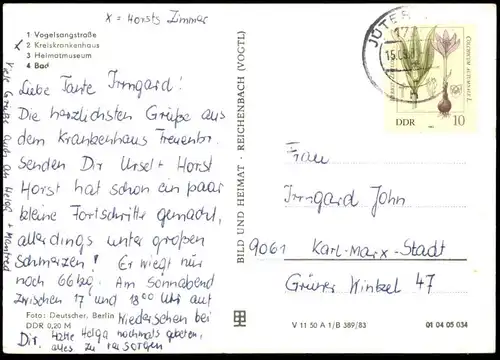 X = Horsts Zimmer
1 Vogelsangstraße
X 2 Kreiskrankenhaus
3 Heimatmuseum
4 Bad
Liebe Tante Irmgard!
Die herzlichsten Grüße aus
dem Krankenhaus Treuenbr.
senden Dir Ursel + Horst
Horst hat schon ein paar
kleine Fortschritte gemacht,
allerdings unter großen
Schmerzen! Er wiegt nur
noch 66 kg. Am Sonnabend
zwischen 17 und 18 00 Uhr auf
Wiedersehen bei
Dir. Hatte Helga nochmals gebeten,
alles zu versorgen
Viele Grüße auch an Helga + Manfred
Foto: Deutscher, Berlin
DDR 0,20 M
BILD UND HEIMAT · REICHENBACH (VOGTL)
JÜTER
17
15.03
COLCHICUM AUTUMNALE L.
DDR 10
Frau
Irmgard John
9061 Karl-Marx-Stadt
Grüner Winkel 47
V 11 50 A 1/B 389/83
01 04 05 034